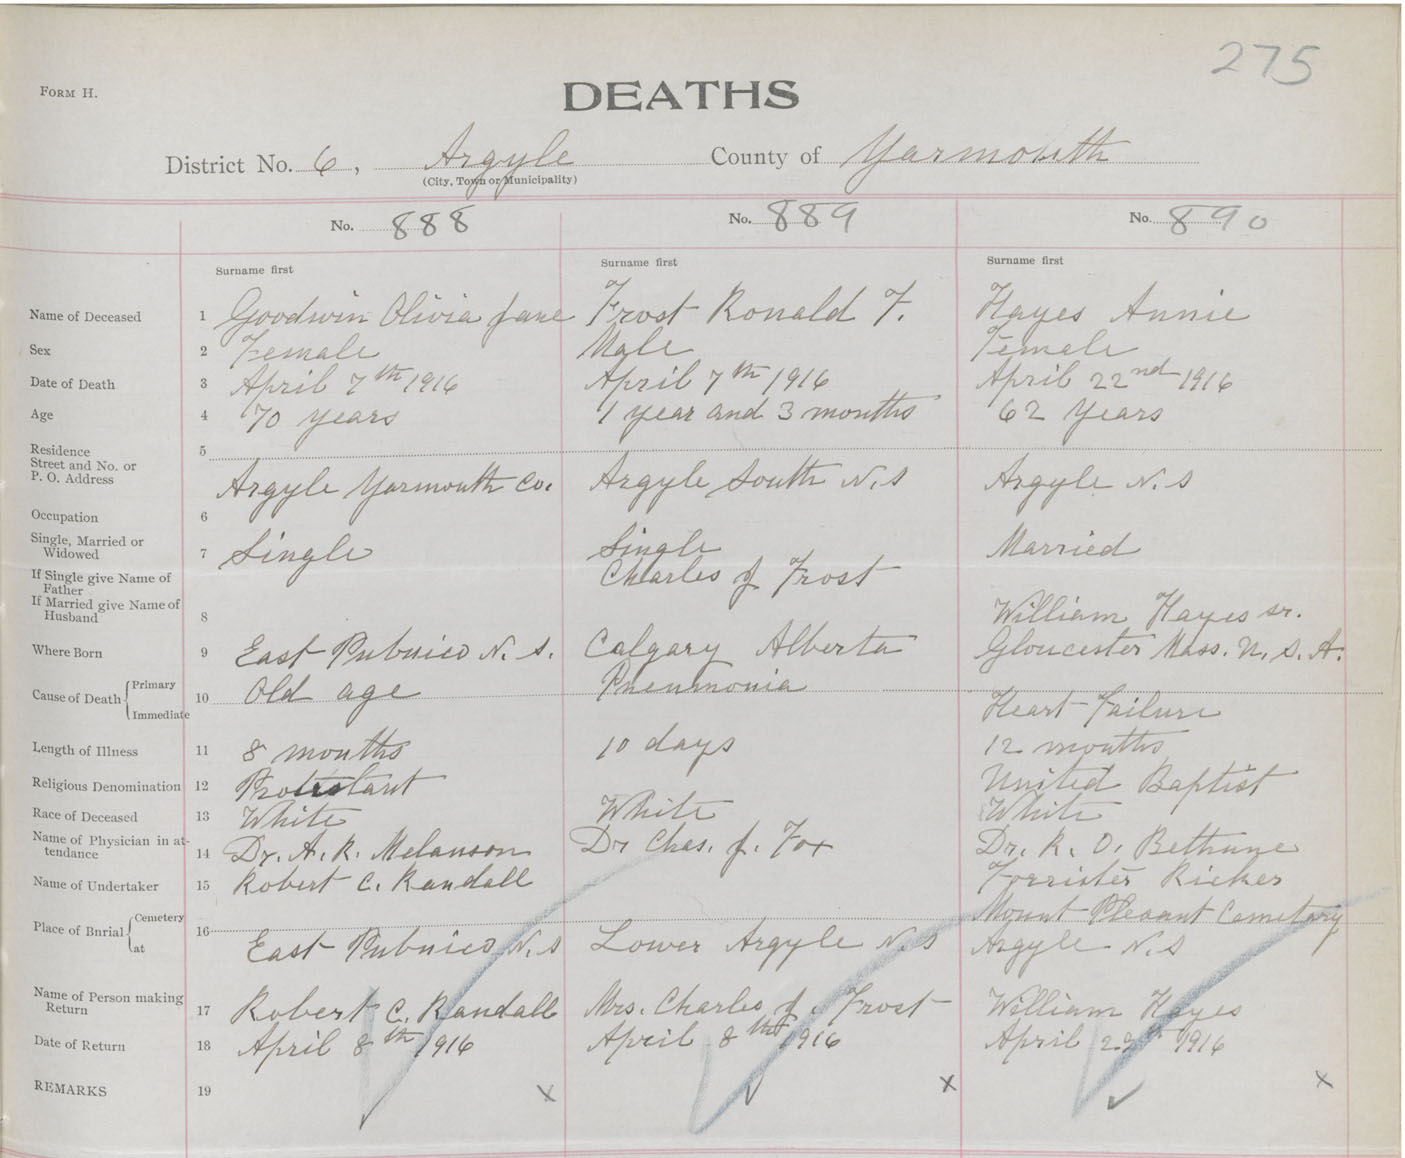 275
Form H.
DEATHS
District No. 6, Argyle County of Yarmouth
(City, Town or Municipality)
No. 888 No. 889 No. 890
Surname first Surname first Surname first
Name of Deceased 1 Goodwin Olivia Jane Frost Ronald F. Hayes Annie
Sex 2 Female Male Female
Date of Death 3 April 7th 1916 April 7th 1916 April 22nd 1916
Age 4 70 years 1 year and 3 months 62 Years
Residence 5
Street and No. or
P. O. Address Argyle Yarmouth Co. Argyle South N.S Argyle N.S
Occupation 6
Single, Married or
Widowed 7 Single Single Married
If Single give Name of
Father Charles J Frost
If Married give Name of
Husband 8 William Hayes sr.
Where Born 9 East Pubnico N.S. Calgary Alberta Gloucester Mass. U.S.A.
Cause of Death Primary 10 Old age Pneumonia
Immediate Heart Failure
Length of Illness 11 8 months 10 days 12 months
Religious Denomination 12 Protestant United Baptist
Race of Deceased 13 White White White
Name of Physician in at-
tendance 14 Dr. A. R. Melanson Dr Chas. J. Fox Dr. R. O. Bethune
Name of Undertaker 15 Robert C. Randall Forrister Ricker
Place of Burial Cemetery 16 Mount Pleasant Cemetary
at East Pubnico N.S Lower Argyle N.S Argyle N.S
Name of Person making
Return 17 Robert C. Randall Mrs. Charles J. Frost William Hayes
Date of Return 18 April 8th 1916 April 8th 1916 April 1916
REMARKS 19 x x x